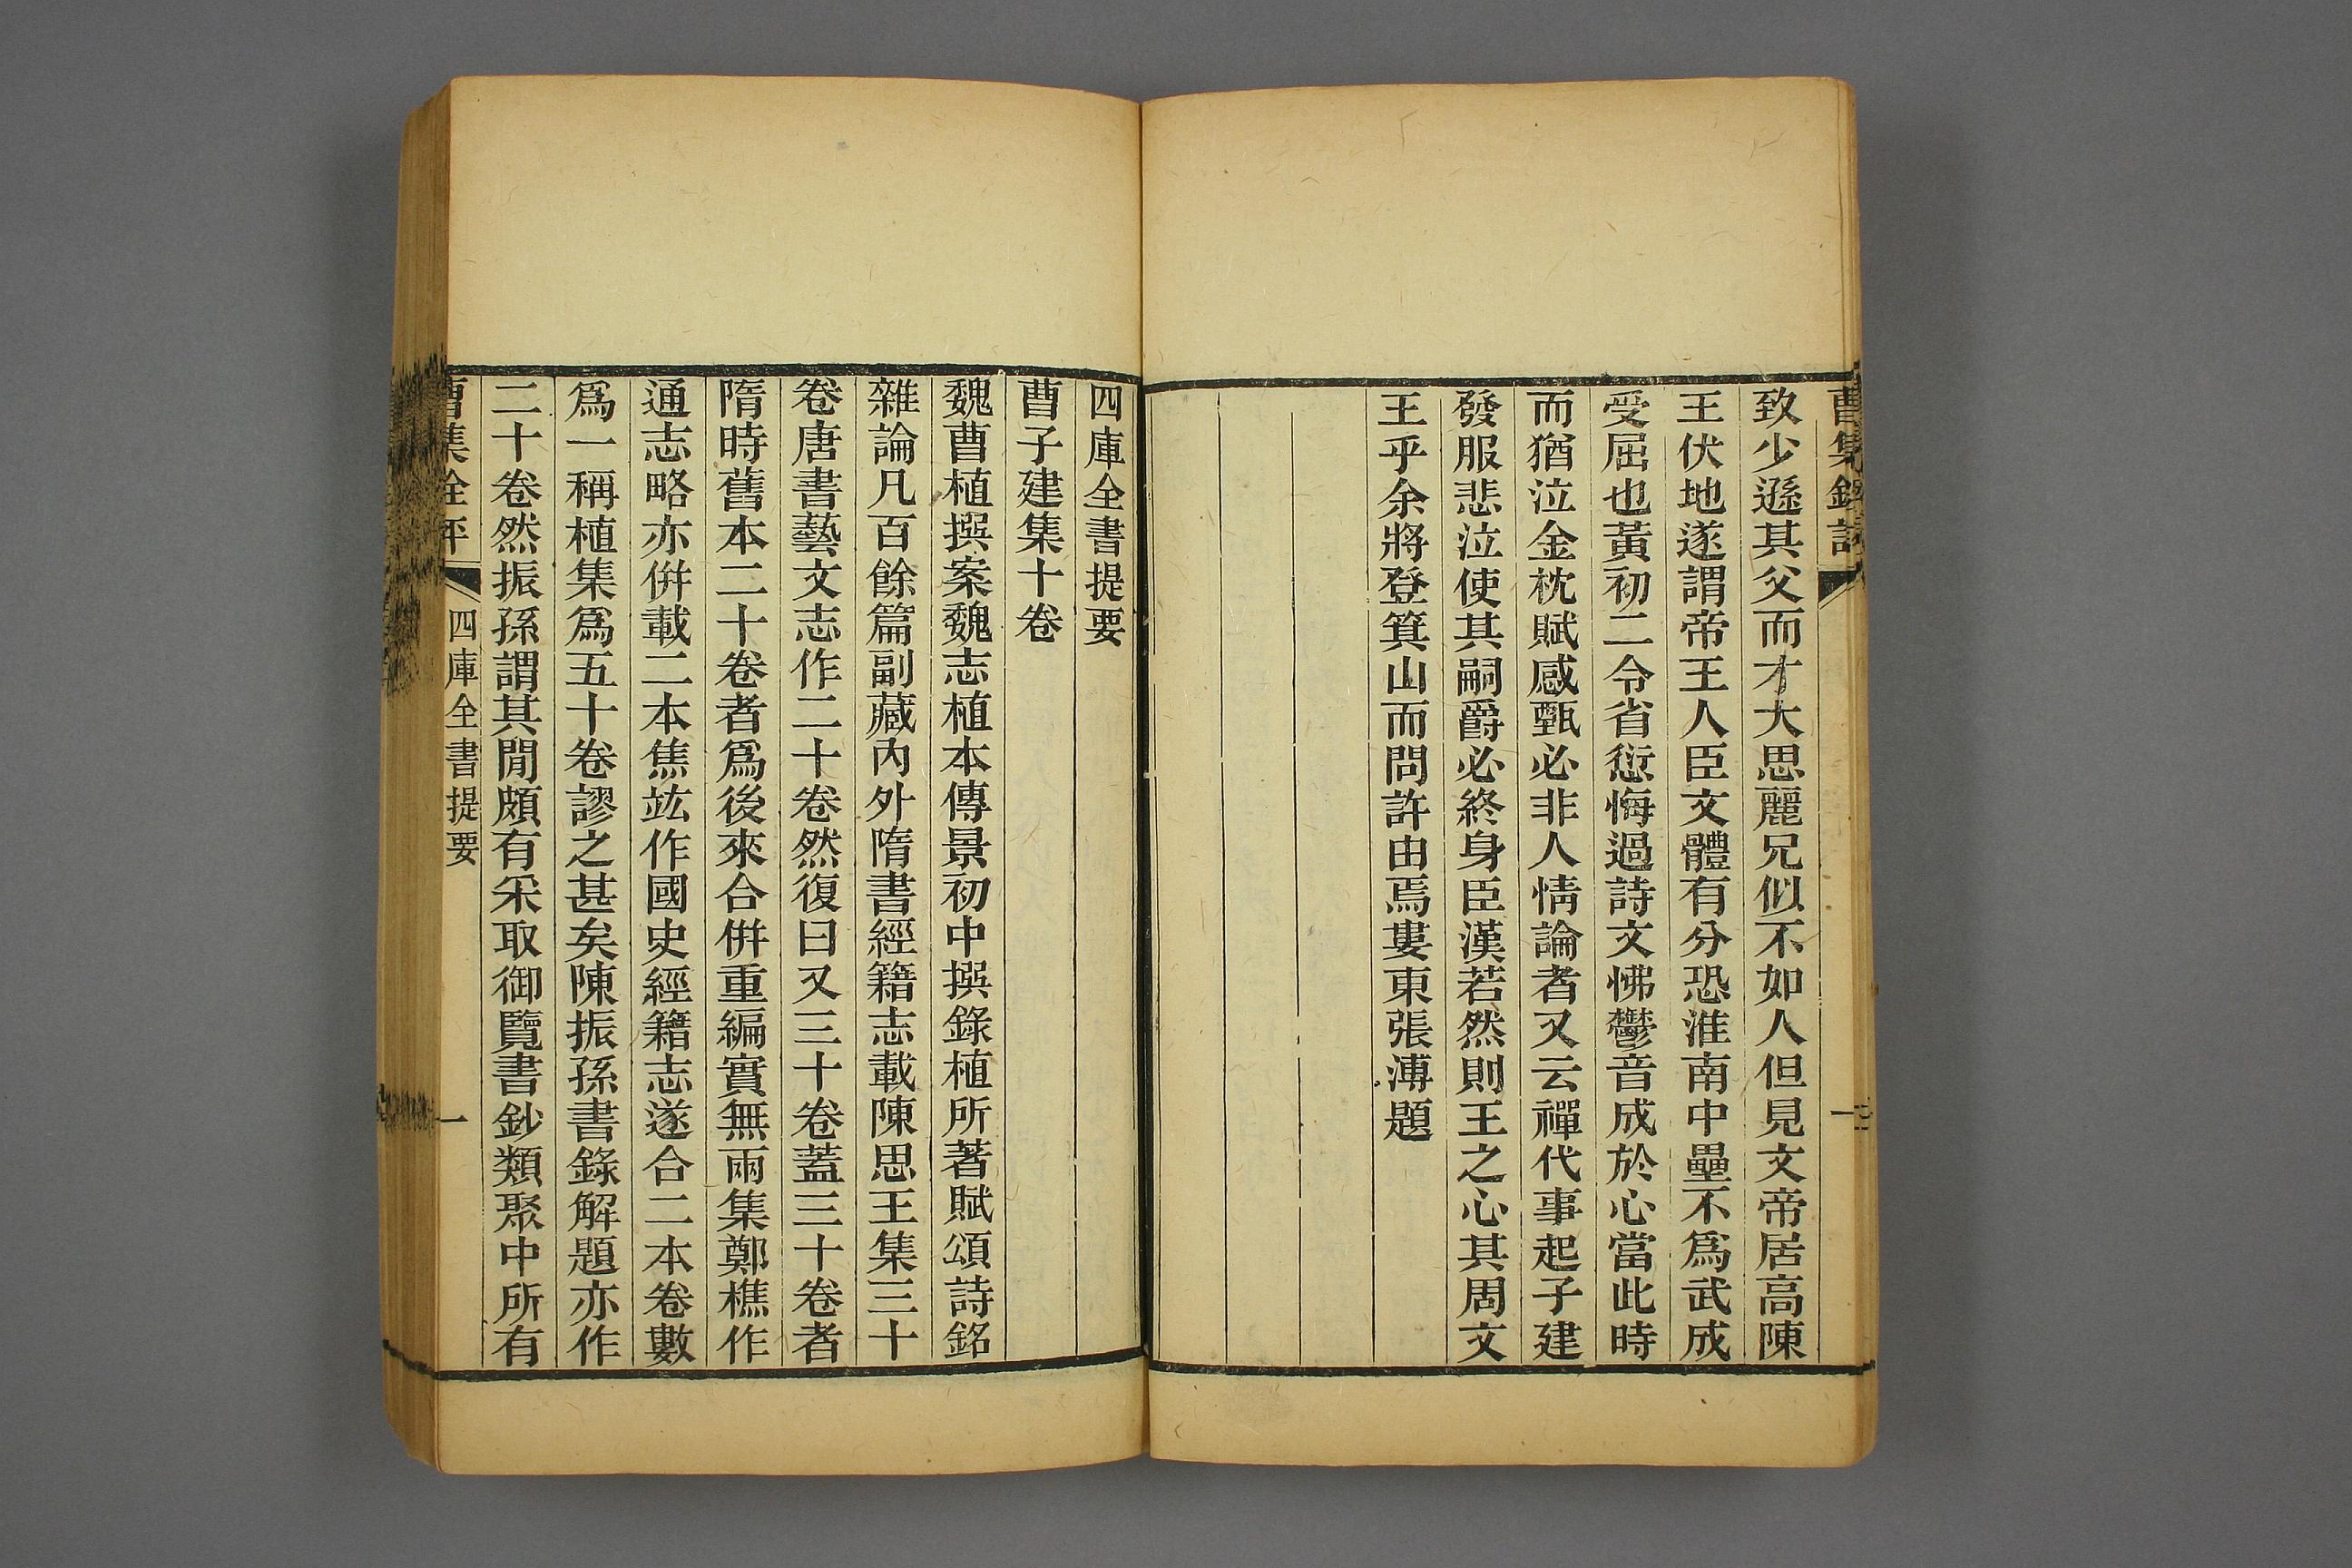 曹集銓評
致少遜其父而才大思麗兄似不如人但見文帝居高陳
王伏地遂謂帝王人臣文體有分恐淮南中壘不爲武成
受屈也黃初二令省愆悔過詩文怫鬱音成於心當此時
而猶泣金枕賦感甄必非人情論者又云禪代事起子建
發服悲泣使其嗣爵必終身臣漢若然則王之心其周文
王乎余將登箕山而問許由焉婁東張溥題
四庫全書提要
曹子建集十卷
魏曹植撰案魏志植本傳景初中撰錄植所著賦頌詩銘
雜論凡百餘篇副藏內外隋書經籍志載陳思王集三十
卷唐書藝文志作二十卷然復曰又三十卷蓋三十卷者
隋時舊本二十卷者爲後來合併重編實無兩集鄭樵作
通志略亦併載二本焦竑作國史經籍志遂合二本卷數
爲一稱植集爲五十卷謬之甚矣陳振孫書錄解題亦作
二十卷然振孫謂其閒頗有采取御覽書鈔類聚中所有
曹集銓評
四庫全書提要
一